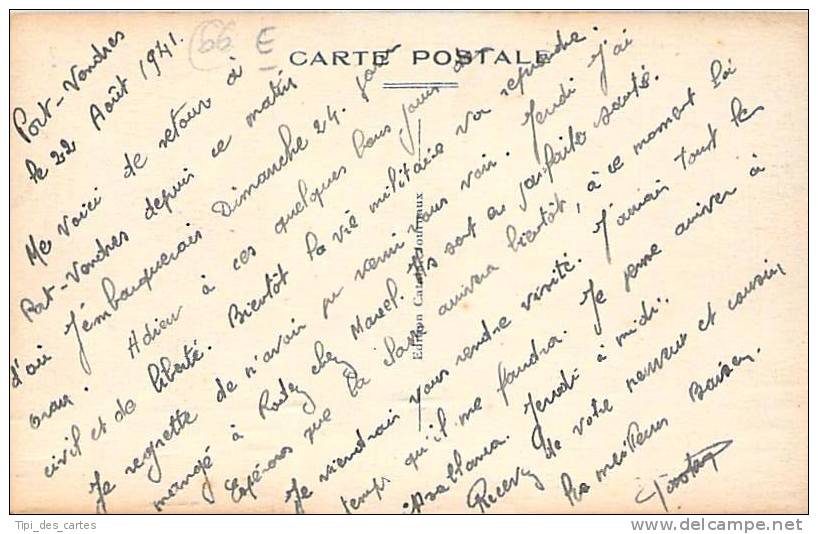 66 E
CARTE POSTALE
Port-Vendres
le 22 Août 1941.
Me voici de retour à
Port-Vendres depuis ce matin
d'où j'embarquerais Dimanche 24. pour
Oran. Adieu à ces quelques bons jours de
civil et de liberté. Bientôt la vie militaire va reprendre.
Je regrette de n'avoir pu venir vous voir. Jeudi j'ai
mangé à Rodez chez Marcel. Ils sont en parfaite santé.
Espérons que la classe arrivera bientôt, à ce moment là
Je viendrais vous rendre visite. J'aurais tout le
temps qu'il me faudra. Je pense arriver à
Jeudi à midi.
Recevez de votre neveu et cousin
les meilleurs Baisers.
Edition Cartes Journaux
Tipi_des_cartes
www.delcampe.net